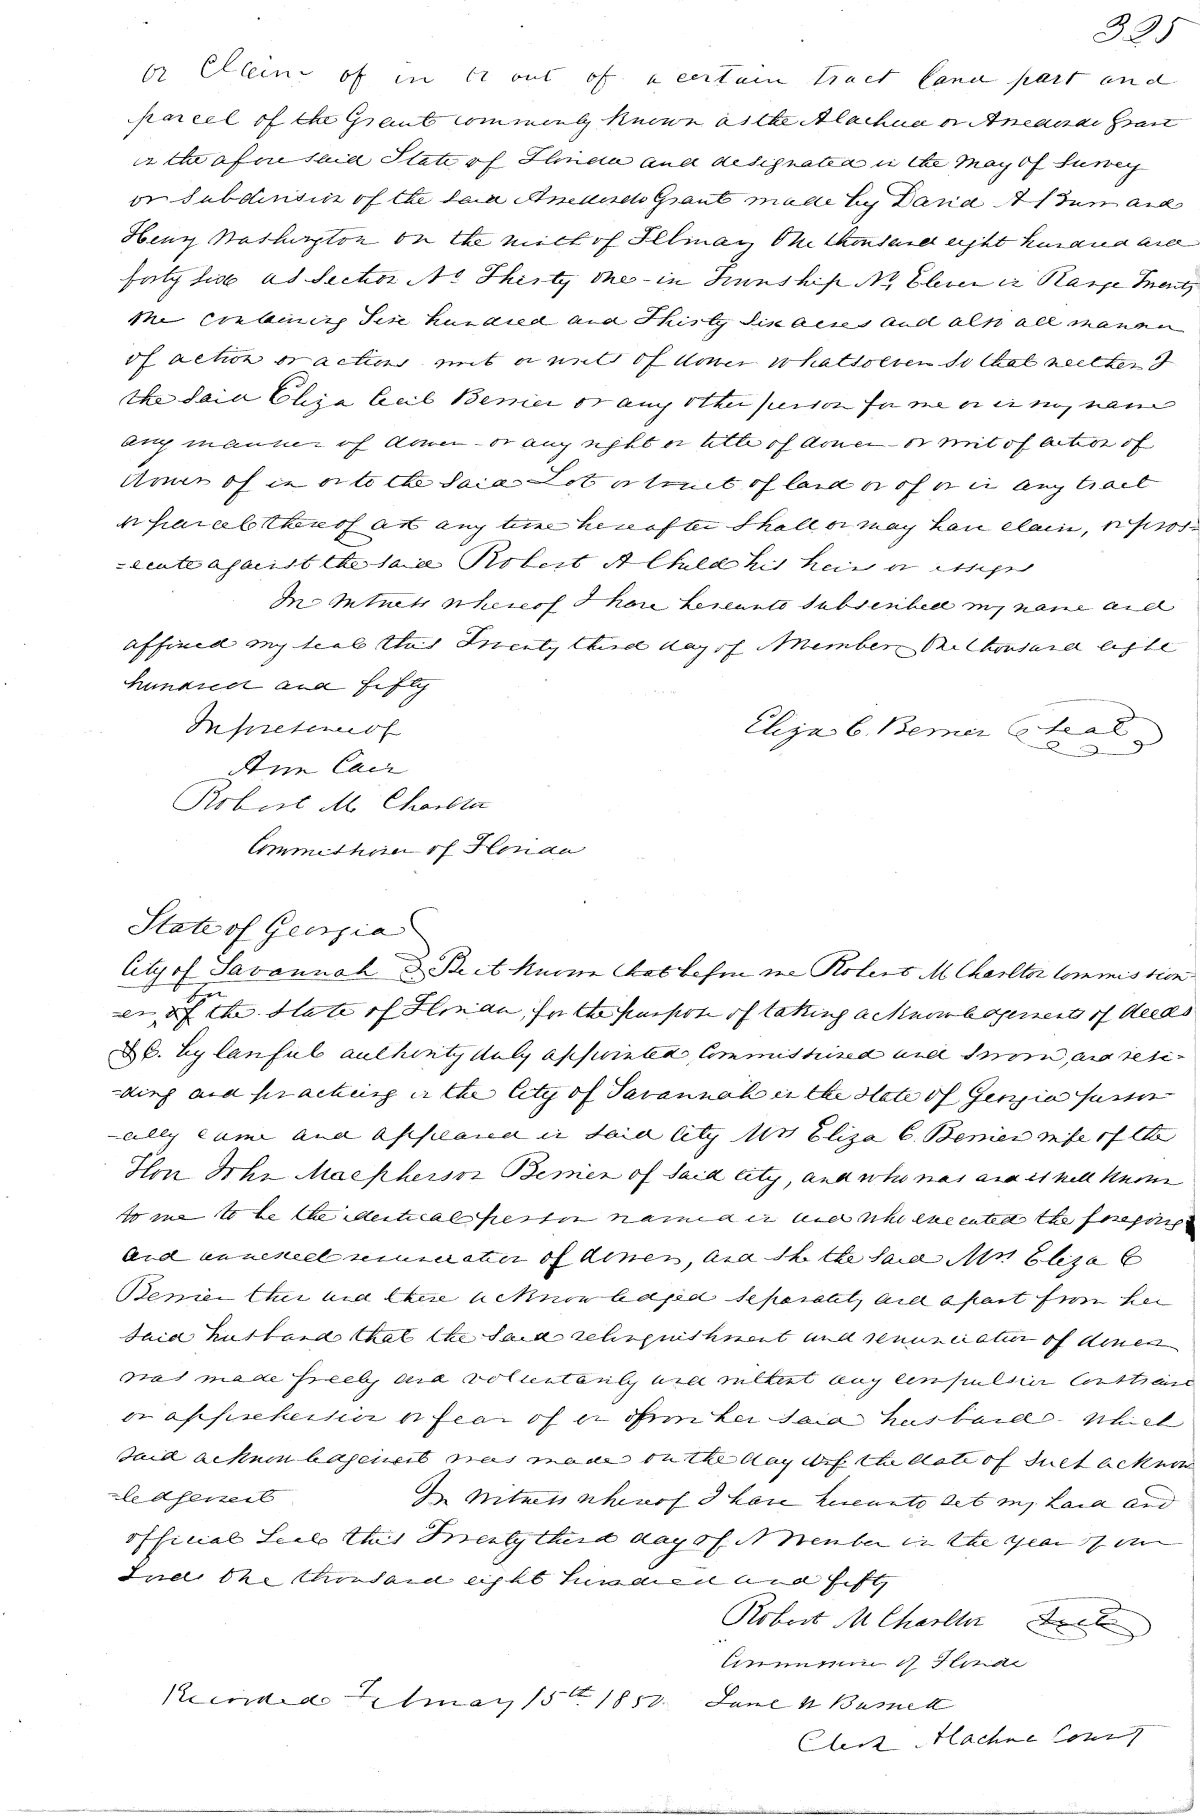 325
or Claim of in or out of a certain tract land part and
parcel of the Grant commonly known as the Alachua or Arredondo Grant
in the aforesaid State of Florida and designated in the Map of Survey
or subdivision of the said Arredondo Grant made by David A Burr and
Henry Washington on the ninth of February One thousand eight hundred and
forty six as Section No Thirty One in Township No Eleven in Range Twenty
One containing Six hundred and Thirty Six acres and also all manner
of action or actions writ or writs of dower whatsoever So that neither I
the said Eliza Cecil Berrien or any other person for me or in my name
any manner of dower or any right or title of dower or writ of action of
dower of in or to the said Lot or tract of land or of or in any tract
or parcel thereof at any time hereafter Shall or may have claim, or pros=
=ecute against the said Robert A Child his heirs or assigns
In Witness whereof I have hereunto Subscribed my name and
affixed my seal this Twenty third day of November One thousand eight
hundred and fifty
In presence of
Eliza C. Berrien Seal
Ann
Robert M Charlton
Commissioner of Florida
State of Georgia
City of Savannah } Be it known that before me Robert M Charlton Commission
=er, for the State of Florida, for the purpose of taking acknowledgements of deeds
&C. by lawful authority duly appointed, Commissioned and Sworn, and resi=
=ding and practicing in the City of Savannah in the State of Georgia person
=ally came and appeared in said City Mrs Eliza C. Berrien wife of the
Hon John Macpherson Berrien of said city, and who was and is well known
to me to be the identical person named in and who executed the foregoing
and annexed renunciation of dower, and she the said Mrs Eliza C
Berrien then and there acknowledged separately and apart from her
said husband that the said relinquishment and renunciation of dower
was made freely and voluntarily and without any compulsion Constraint
or apprehension or fear of or from her said husband which
said acknowledgement was made on the day of the date of such acknow
=ledgement In Witness whereof I have hereunto set my hand and
official Seal this Twenty third day of November in the year of our
Lord One thousand eight hundred and fifty
Robert M Charlton Seal
Commissioner of Florida
Recorded February 15th 1850
Clerk Alachua County